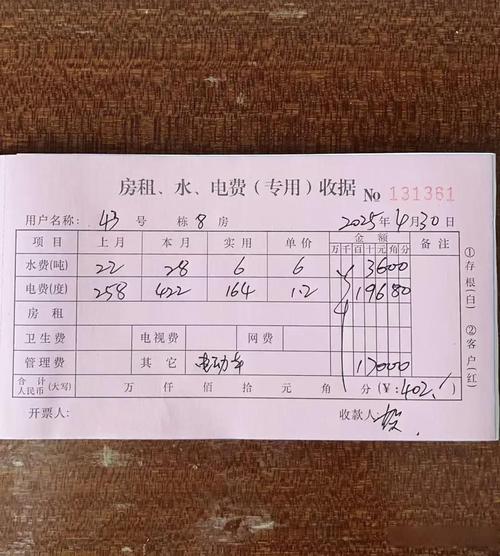 房租、水、电费(专用)收据 No 131361
用户名称: 43 号 栋 8 房 2025年4月30日
项目 上月 本月 实用 单价 金额 备注
万千百十元角分
水费(吨) 22 28 6 6 3600
电费(度) 258 422 164 1.2 19680
房租
卫生费 电视费 网费
管理费 其它 电动车 17000
合计人民币(大写) 万 仟 佰 拾 元 角 分(¥:402.
开票人: 收款人:
①存根(白) ②客户(红)